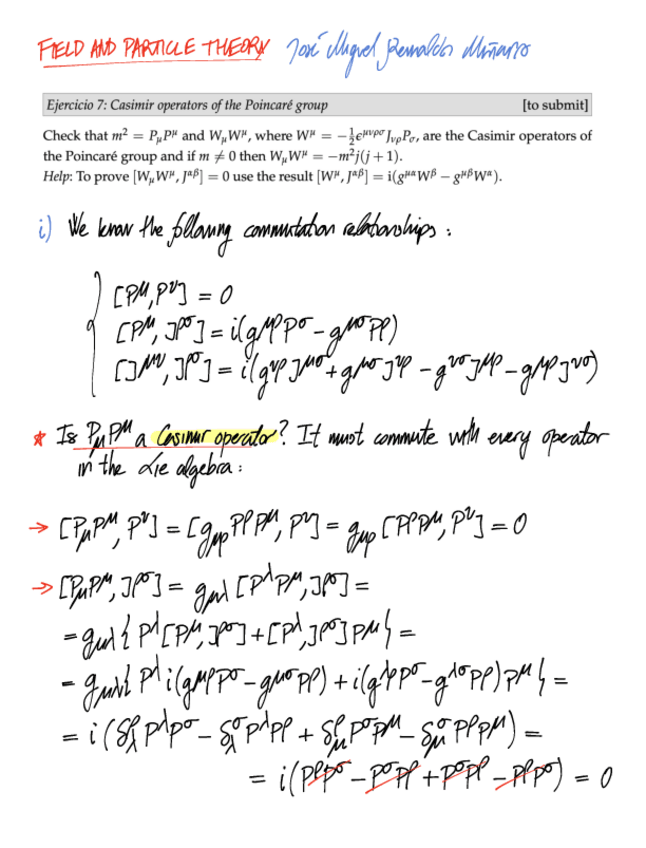 FIELD AND PARTICLE THEORY José Miguel Remaldos Miñarro
Ejercicio 7: Casimir operators of the Poincaré group [to submit]
Check that m² = PμP^μ and WμW^μ, where W^μ = −½ϵ^{μνρσ}J_{νρ}P_σ, are the Casimir operators of
the Poincaré group and if m ≠ 0 then WμW^μ = −m²j(j + 1).
Help: To prove [WμW^μ, J^{αβ}] = 0 use the result [W^μ, J^{αβ}] = i(g^{μα}W^β − g^{μβ}W^α).
i) We know the following commutation relationships :
[P^μ, P^ν] = 0
[P^μ, J^{ρσ}] = i(g^{μρ}P^σ − g^{μσ}P^ρ)
[J^{μν}, J^{ρσ}] = i(g^{νρ}J^{μσ} + g^{μσ}J^{νρ} − g^{νσ}J^{μρ} − g^{μρ}J^{νσ})
* Is PμP^μ a Casimir operator? It must commute with every operator
in the Lie algebra :
→ [PμP^μ, P^ν] = [g_{μρ}P^ρP^μ, P^ν] = g_{μρ}[P^ρP^μ, P^ν] = 0
→ [PμP^μ, J^{ρσ}] = g_{μλ}[P^λP^μ, J^{ρσ}] =
= g_{μλ}{P^λ[P^μ, J^{ρσ}] + [P^λ, J^{ρσ}]P^μ} =
= g_{μλ}{P^λ i(g^{μρ}P^σ − g^{μσ}P^ρ) + i(g^{λρ}P^σ − g^{λσ}P^ρ)P^μ} =
= i(δ^ρ_λ P^λP^σ − δ^σ_λ P^λP^ρ + δ^ρ_μ P^σP^μ − δ^σ_μ P^ρP^μ) =
= i(P^ρP^σ − P^σP^ρ + P^σP^ρ − P^ρP^σ) = 0